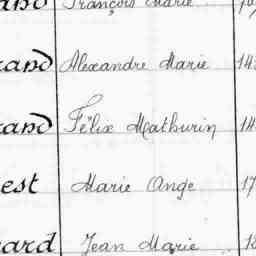 François Marie
Alexandre Marie 14
Félix Mathurin 14
est Marie Ange 17
ard Jean Marie